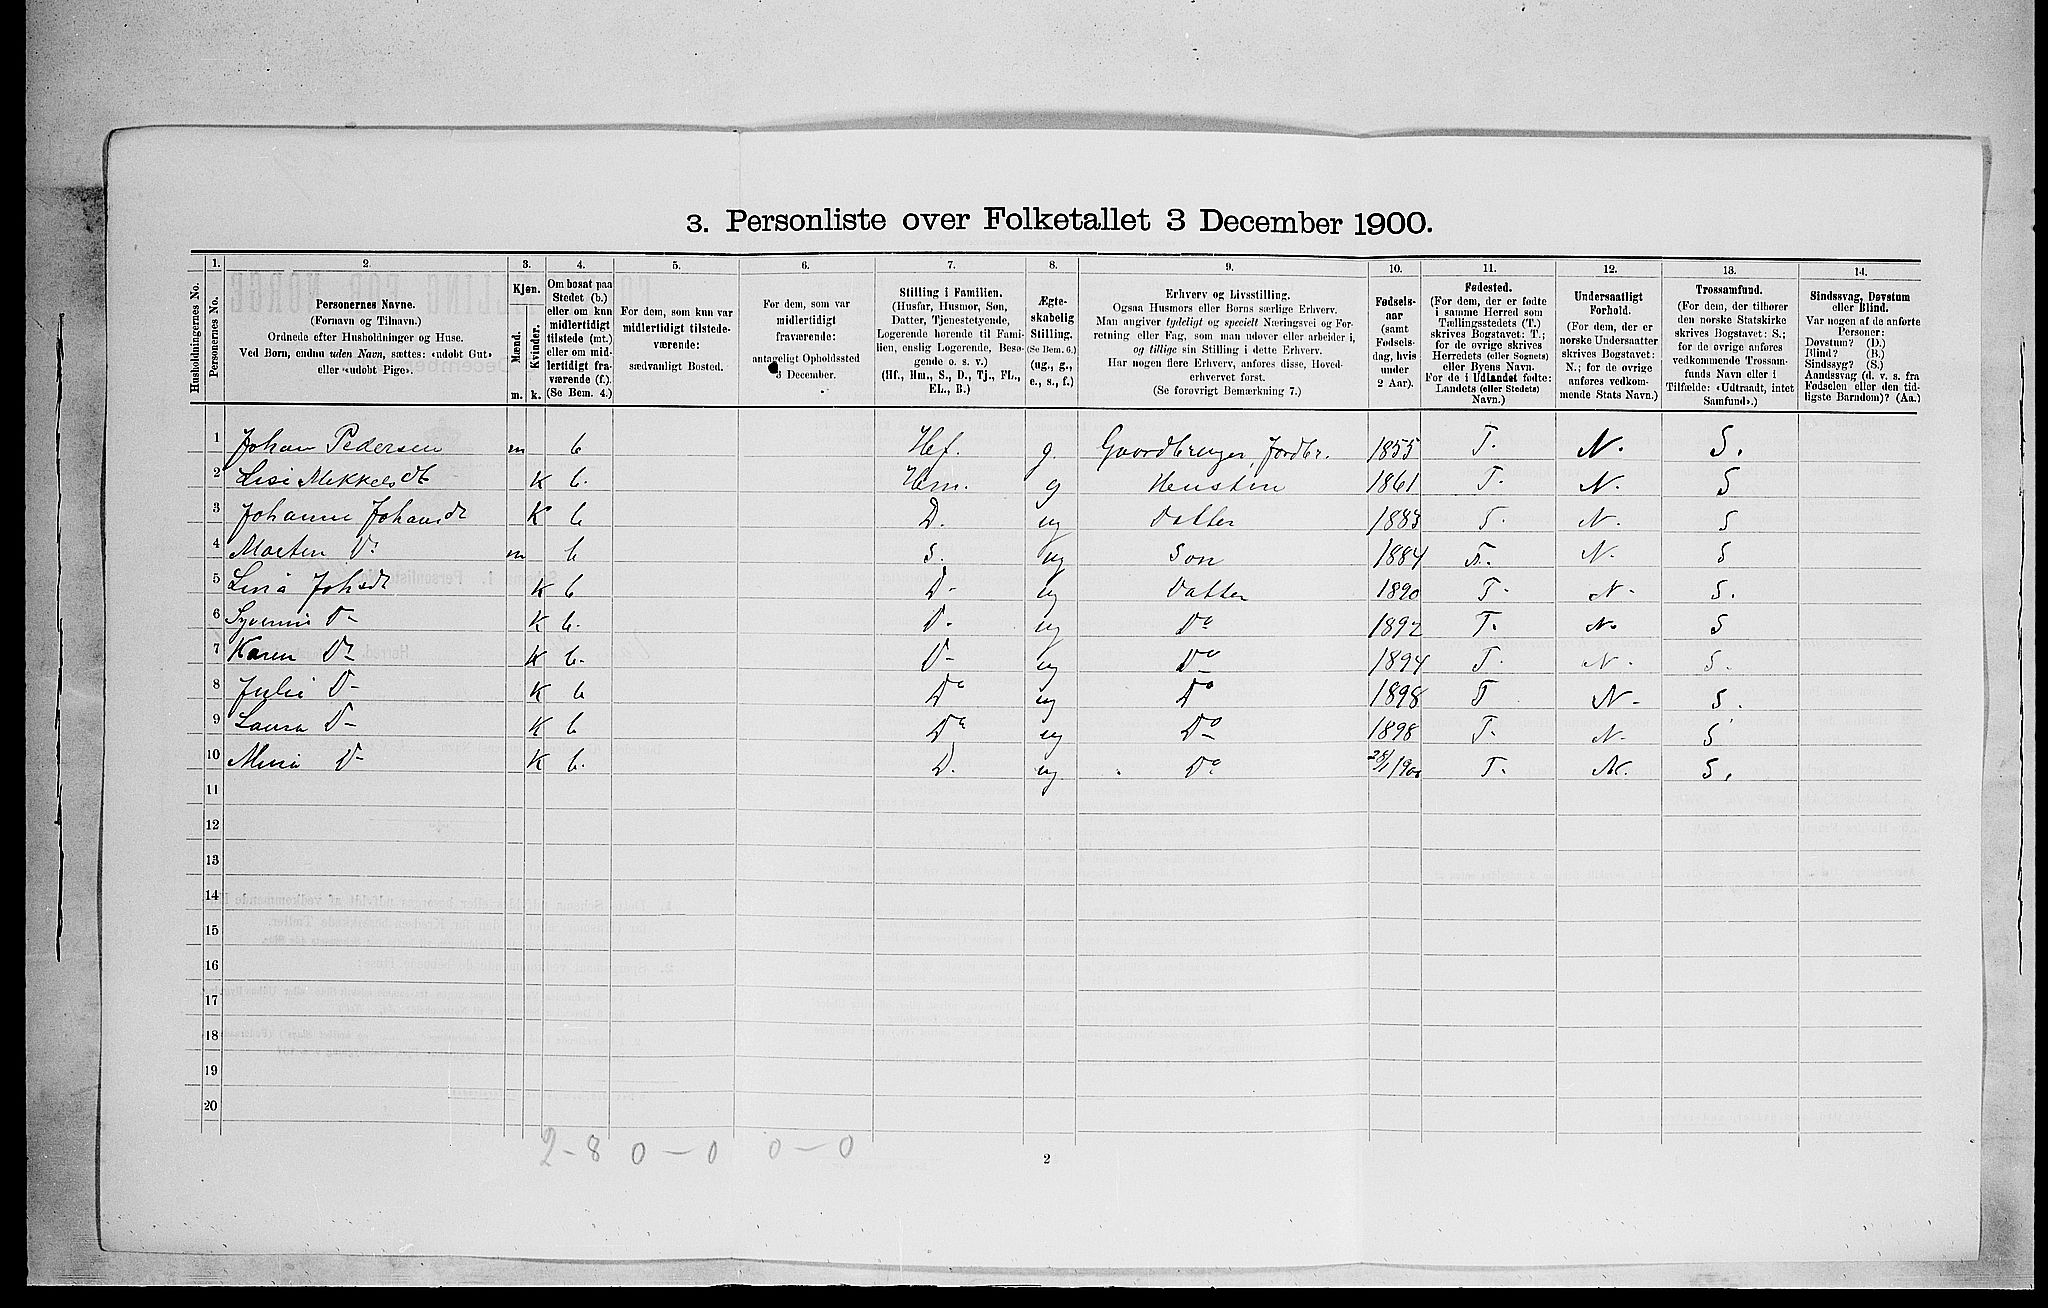 3. Personliste over Folketallet 3 December 1900.
Husholdningernes No.
1.
Personernes No.
2.
Personernes Navne.
(Fornavn og Tilnavn.)
Ordnede efter Husholdninger og Huse.
Ved Børn, endnu uden Navn, sættes: «udøbt Gut»
eller «udøbt Pige».
3.
Kjøn.
Mænd.
Kvinder.
m. k.
4.
Om bosat paa
Stedet (b.)
eller om kun
midlertidigt
tilstede (mt.)
eller om mid-
lertidigt fra-
værende (f.).
(Se Bem. 4.)
5.
For dem, som kun var
midlertidigt tilstede-
værende:
sædvanligt Bosted.
6.
For dem, som var
midlertidigt
fraværende:
antageligt Opholdssted
3 December.
7.
Stilling i Familien.
(Husfar, Husmor, Søn,
Datter, Tjenestetyende,
Logerende hørende til Fami-
lien, enslig Logerende, Besø-
gende o. s. v.)
(Hf., Hm., S., D., Tj., FL.,
EL., B.)
8.
Ægte-
skabelig
Stilling.
(Se Bem. 6.)
(ug., g.,
e., s., f.)
9.
Erhverv og Livsstilling.
Ogsaa Husmors eller Børns særlige Erhverv.
Man angiver tydeligt og specielt Næringsvei og For-
retning eller Fag, som man udøver eller arbeider i,
og tillige sin Stilling i dette Erhverv.
Har nogen flere Erhverv, anføres disse, Hoved-
erhvervet først.
(Se forøvrigt Bemærkning 7.)
10.
Fødsels-
aar
(samt
Fødsels-
dag, hvis
under
2 Aar).
11.
Fødested.
(For dem, der er fødte
i samme Herred som
Tællingsstedets (T.)
skrives Bogstavet: T.;
for de øvrige skrives
Herredets (eller Sognets)
eller Byens Navn.
For de i Udlandet fødte:
Landets (eller Stedets)
Navn.)
12.
Undersaatligt
Forhold.
(For dem, der er
norske Undersaatter
skrives Bogstavet:
N.; for de øvrige
anføres vedkom-
mende Stats Navn.)
13.
Trossamfund.
(For dem, der tilhører
den norske Statskirke
skrives Bogstavet: S.;
for de øvrige anføres
vedkommende Trossam-
funds Navn eller i
Tilfælde: «Udtraadt, intet
Samfund».)
14.
Sindssvag, Døvstum
eller Blind.
Var nogen af de anførte
Personer:
Døvstum? (D.)
Blind? (B.)
Sindssyg? (S.)
Aandssvag (d. v. s. fra
Fødselen eller den tid-
ligste Barndom)? (Aa.)
1 Johan Pedersen m b Hf. g. Gaardbruger, Jordbr. 1855 T. N. S.
2 Lise Mekkelsdt K b. Hm. g 1861 T. N. S
3 Johanne Johansdt K b D. ug Datter 1883 T. N. S
4 Morten Do m b S. ug Son 1884 T. N. S
5 Lina Johsdt K b D- ug Datter 1890 T. N- S.
6 D- K b. D. ug Do 1892 T. N. S
7 Karen Do K b. D- ug Do 1894 T. N. S.
8 Julie D- K b Do ug Do 1898 T N- S.
9 Laura D- K b Do ug Do 1898 T. N- S
10 Mina D- K b. D. ug Do T. N. S.
11
12
13
14
15
16
17
18
19
20
2-8 0-0 0-0
2